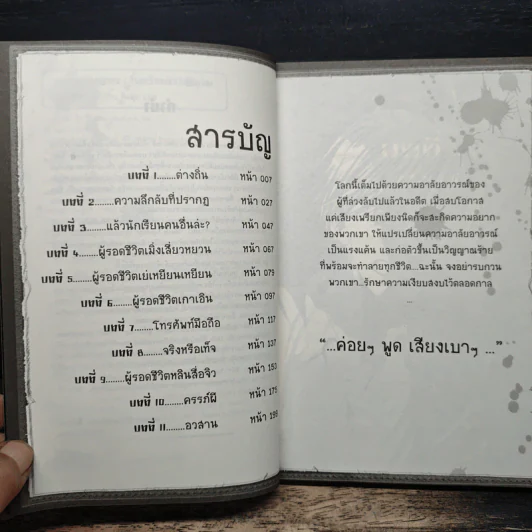 สารบัญ
บทที่ 1........ต่างถิ่น หน้า 007
บทที่ 2........ความลึกลับที่ปรากฏ หน้า 027
บทที่ 3........แล้วนักเรียนคนอื่นล่ะ? หน้า 047
บทที่ 4........ผู้รอดชีวิตเมิ่งเสี่ยวหยวน หน้า 067
บทที่ 5........ผู้รอดชีวิตเย่เหยียนเหยียน หน้า 079
บทที่ 6........ผู้รอดชีวิตเกาเอิน หน้า 097
บทที่ 7........โทรศัพท์มือถือ หน้า 117
บทที่ 8........จริงหรือเท็จ หน้า 137
บทที่ 9........ผู้รอดชีวิตหลินสื่อจิว หน้า 153
บทที่ 10........ครรภ์ผี หน้า 175
บทที่ 11........อวสาน หน้า 199
โลกนี้เต็มไปด้วยความอาลัยอาวรณ์ของ
ผู้ที่ล่วงลับไปแล้วในอดีต เมื่อสบโอกาส
แค่เสียงเพรียกเพียงนิดก็จะสะกิดความอยาก
ของพวกเขา ให้แปรเปลี่ยนความอาลัยอาวรณ์
เป็นแรงแค้น และก่อตัวขึ้นเป็นวิญญาณร้าย
ที่พร้อมจะทำลายทุกชีวิต...ฉะนั้น จงอย่ารบกวน
พวกเขา...รักษาความเงียบสงบไว้ตลอดกาล
...
“...ค่อยๆ พูด เสียงเบาๆ ...”